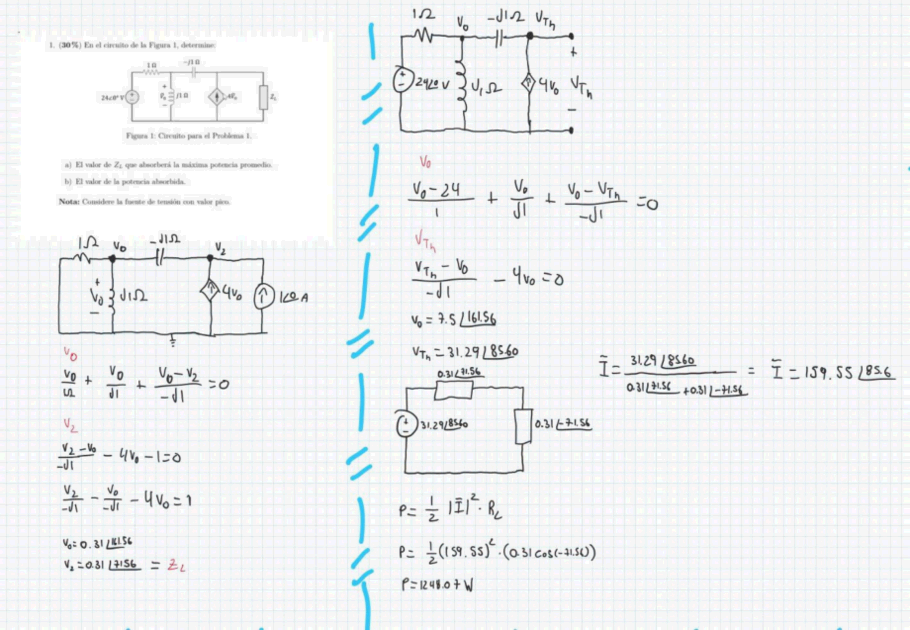 1. (30%) En el circuito de la Figura 1, determine:
1 Ω
−j1 Ω
24∠0° V
j1 Ω
Z_L
Figura 1: Circuito para el Problema 1.
a) El valor de Z_L que absorberá la máxima potencia promedio.
b) El valor de la potencia absorbida.
Nota: Considere la fuente de tensión con valor pico.
1Ω V₀ -J1Ω V₂
+ V₀ - J1Ω 4V₀ 1∠0 A
V₀
V₀/1Ω + V₀/J1 + (V₀-V₂)/-J1 = 0
V₂
(V₂-V₀)/-J1 - 4V₀ - 1 = 0
V₂/-J1 - V₀/-J1 - 4V₀ = 1
V₀ = 0.31∠161.56
V₂ = 0.31∠71.56 = Z_L
1Ω V₀ -J1Ω V_Th
24∠0 V J1Ω 4V₀ + V_Th -
V₀
(V₀-24)/1 + V₀/J1 + (V₀-V_Th)/-J1 = 0
V_Th
(V_Th-V₀)/-J1 - 4V₀ = 0
V₀ = 7.5∠161.56
V_Th = 31.29∠85.60
0.31∠71.56
31.29∠85.60 0.31∠-71.56
Ī = 31.29∠85.60 / (0.31∠71.56 + 0.31∠-71.56) = Ī = 159.55∠85.6
P = 1/2 |Ī|² · R_L
P = 1/2 (159.55)² · (0.31 cos(-71.56))
P = 1248.07 W